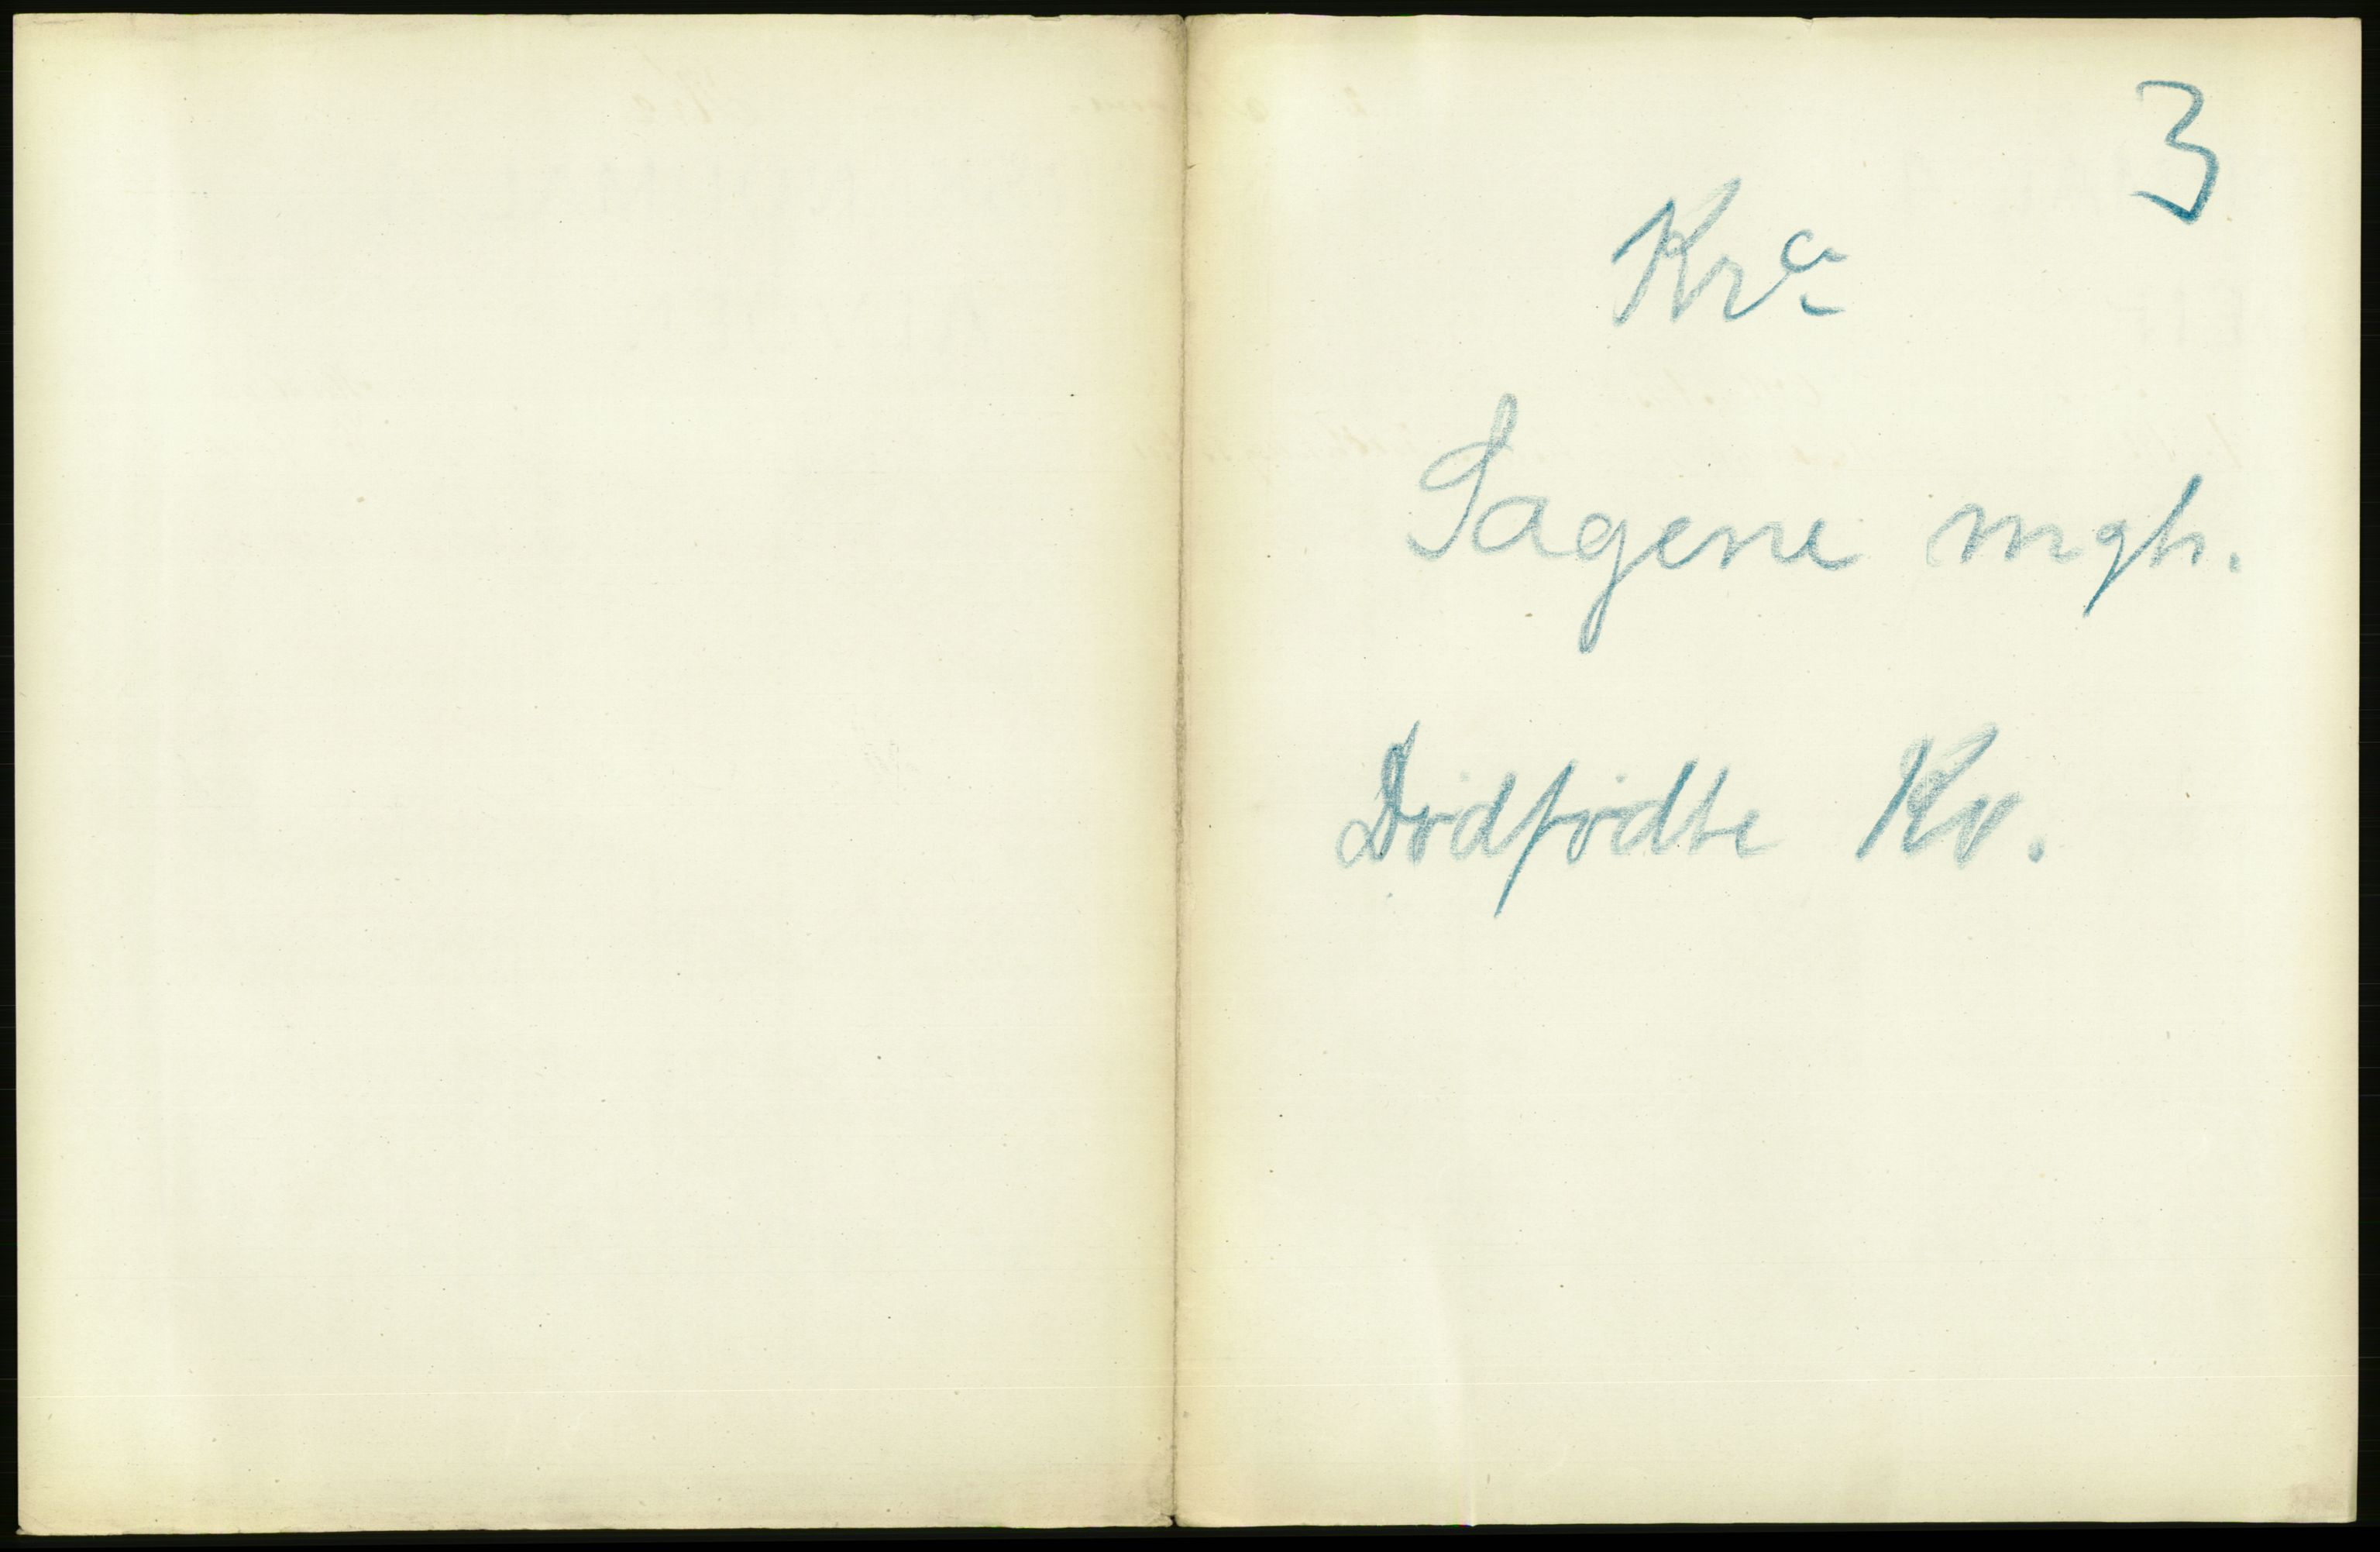 3
Kra
Sagene mgh.
Dødfødte Kv.